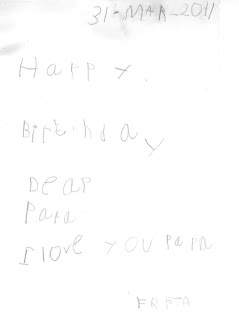 31-MAR-2011
Happy.
Birthday
Dear
Papa
I love you papa